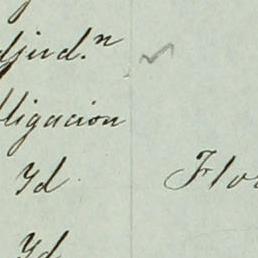 djud.ⁿ
bligacion
Yd Flo
Yd